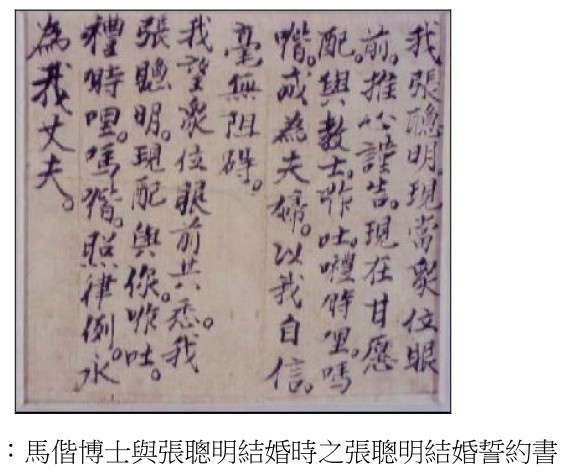 我張聰明。現當衆位眼
前。推心謹告。現在甘愿
配。與教士。咋吐。禮時哩。嗎
喈。成為夫婦。以我自信。
毫無阻碍。
我望衆位眼前共悉。我
張聰明。現配與你。咋吐。
禮時哩。嗎喈。照律例。永
為我丈夫。
：馬偕博士與張聰明結婚時之張聰明結婚誓約書